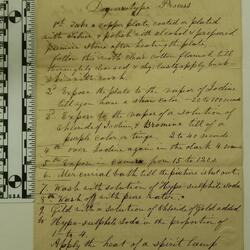 Daguerreotype Process
1st Take a copper plate, coated or plated
with Silver & polish with alcohol & prepared
pumice stone after heating the plate,
follow this with clean cotton flannel till
thoroughly cleaned & dry; lastly apply buck
2 Expose the plate to the vapor of Iodine
till you have a straw color — 20 to 100 seconds
3 Expose to the vapor of a solution of
Chloride of Iodine & Bromine till of a
purple color or tinge 2 to 40 seconds
4th over Iodine again in the dark 4 sec
5th Expose in camera from 15 to 12 sec.
6. Mercurial bath till the picture is out
7. Wash with solution of Hypo-sulphite soda
8th Wash off with pure water.
9 Gild with a solution of Chloride of Gold added
to Hypo-sulphite Soda in the proportion of
Apply the heat of a spirit lamp